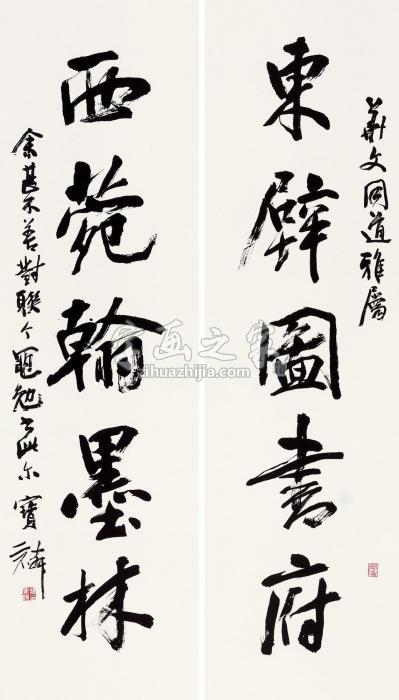 華文同道雅屬
東壁圖書府
西苑翰墨林
余甚不善對聯今黽勉書此爾 寶麟
字画之家
zihuazhijia.com